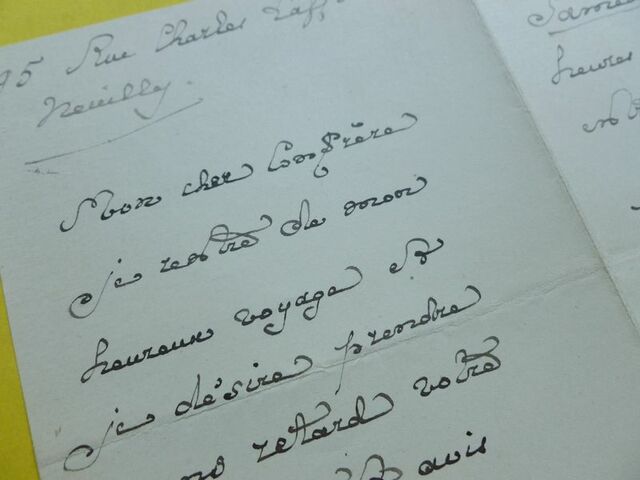 Rue Charles
Neuilly.
Mon cher Confrère
je rentre de mon
heureux voyage et
je désire prendre
retard votre
avis
heures